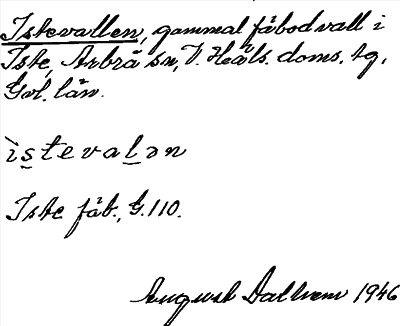 Istevallen, gammal fäbodvall i
Iste, Arbrå sn, V. Häls. doms. tg,
Gävl. län.
istevalən
Iste fäb., G. 110.
August Dalhem 1946